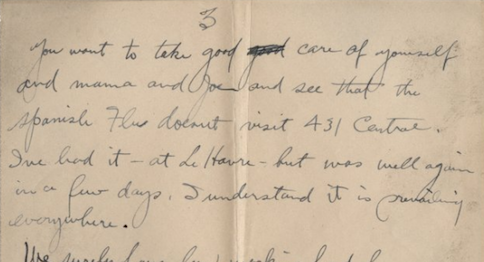 3
You want to take good good care of yourself
and mama and Joe and see that the
Spanish Flu doesnt visit 431 Central.
I've had it - at Le Havre - but was well again
in a few days. I understand it is
everywhere.
We surely have